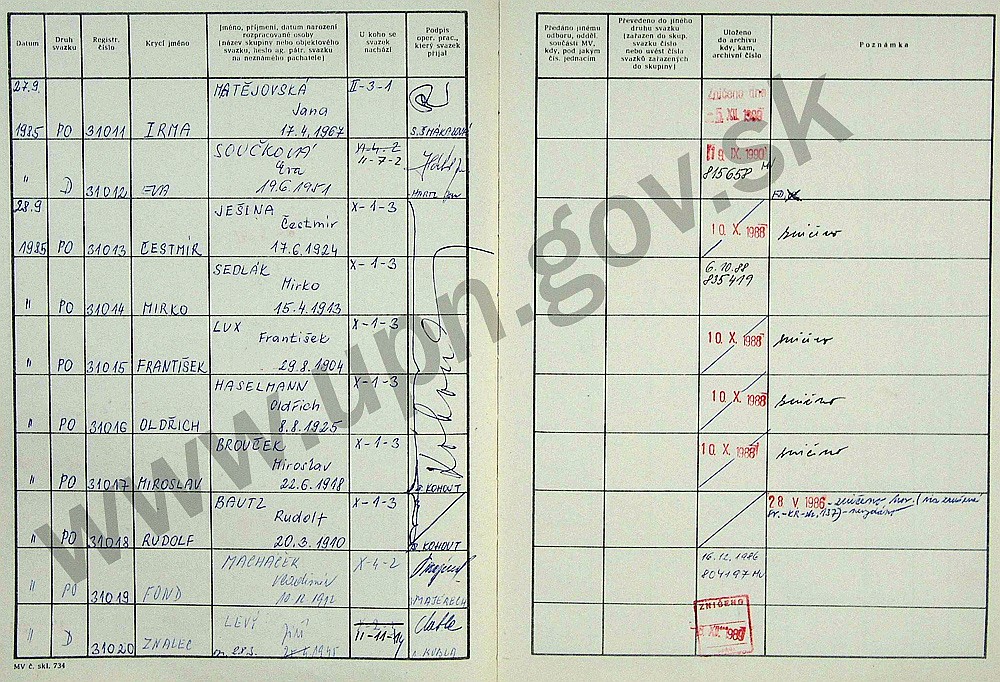 Datum
Druh svazku
Registr. číslo
Krycí jméno
Jméno, příjmení, datum narození rozpracované osoby (název skupiny nebo objektového svazku, heslo ag. pátr. svazku na neznámého pachatele)
U koho se svazek nachází
Podpis oper. prac., který svazek přijal
Předáno jinému odboru, odděl. součásti MV, kdy, pod jakým čís. jednacím
Převedeno do jiného druhu svazku (zařazen do skup. svazku číslo nebo uvést čísla svazků zařazených do skupiny)
Uloženo do archivu kdy, kam, archivní číslo
Poznámka
27.9. MATĚJOVSKÁ II-3-1
Jana
1985 PO 31011 IRMA 17.4.1967
Zničeno dne
SOUČKOVÁ XI-4-2
Eva II-7-2
" D 31012 EVA 19.6.1951
19. IX. 1990
815658 MV
28.9 JEŠINA X-1-3
Čestmír
1985 PO 31013 ČESTMÍR 17.6.1924
10. X. 1988 zničeno
SEDLÁK X-1-3
Mirko
" PO 31014 MIRKO 15.4.1913
6.10.88
835419
LUX X-1-3
František
" PO 31015 FRANTIŠEK 29.8.1904
10. X. 1988 zničeno
HASELMANN X-1-3
Oldřich
" PO 31016 OLDŘICH 8.8.1925
10. X. 1988 zničeno
BROUČEK X-1-3
Miroslav
" PO 31017 MIROSLAV 22.6.1918 KOHOUT
10. X. 1988 zničeno
BAUTZ X-1-3
Rudolf
" PO 31018 RUDOLF 20.3.1910 KOHOUT
28. V. 1986 - zničeno
MACHÁČEK X-4-2
Vladimír
" PO 31019 FOND
16.12.1986
804197 MV
LEVÝ
Jiří II-11-14
" D 31020 ZNALEC
ZNIČENO
MV č. skl. 734
www.upn.gov.sk